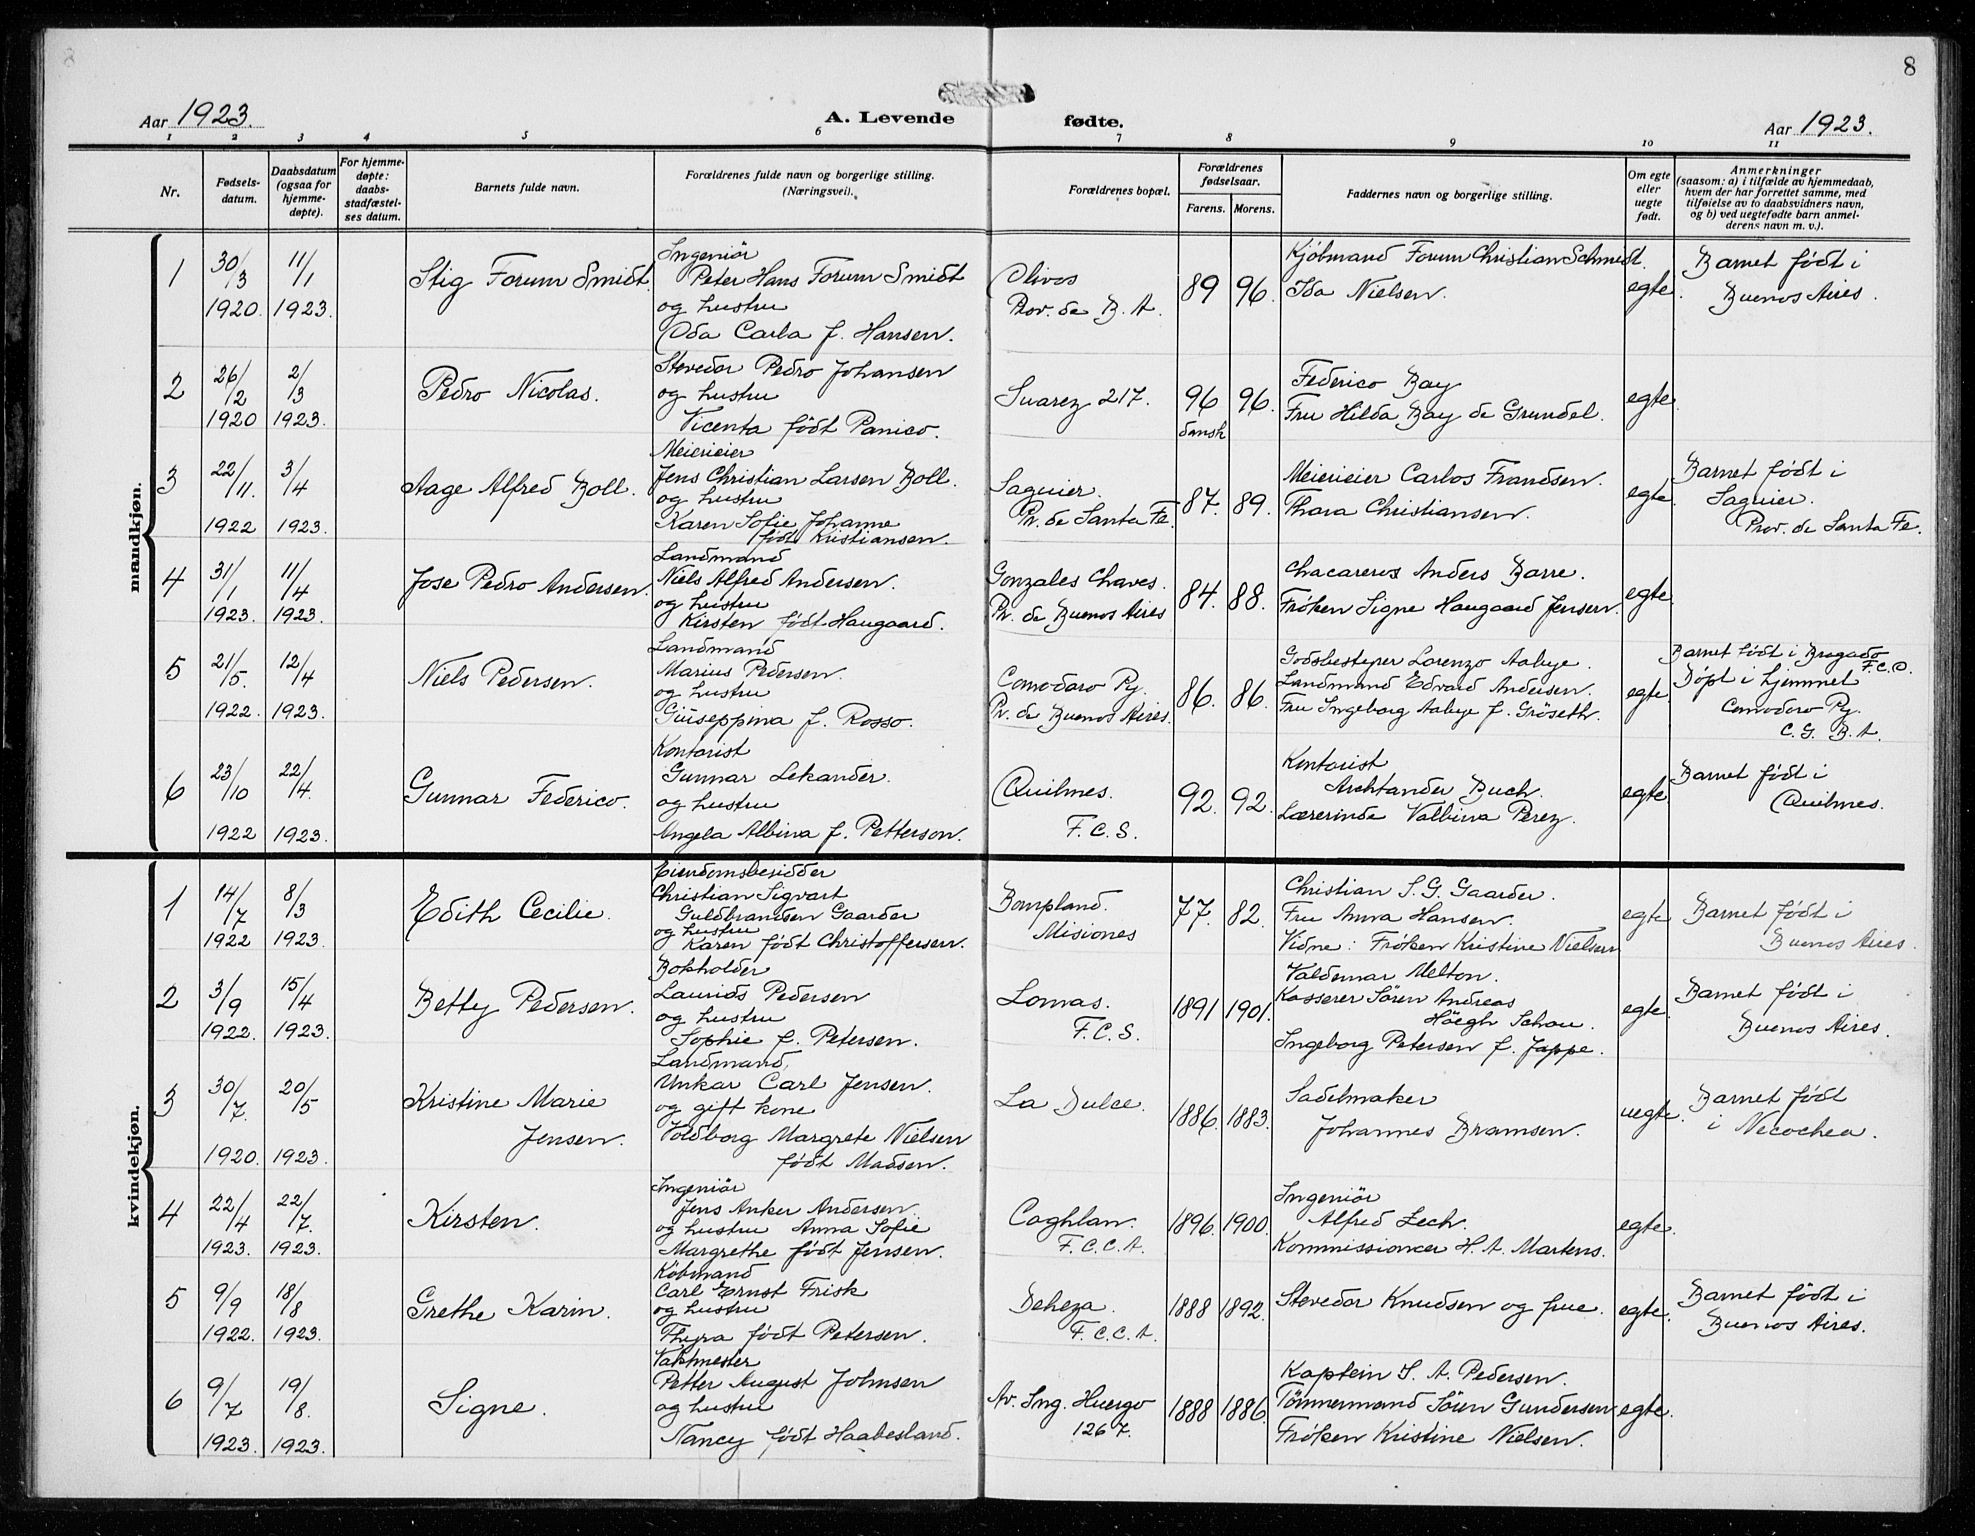 8
Aar 1923.
A. Levende fødte.
Aar 1923.
1 2 3 4 5 6 7 8 9 10 11
Nr.
Fødsels-
datum.
Daabsdatum
(ogsaa for
hjemme-
døpte).
For hjemme-
døpte:
daabs-
stadfæstel-
ses datum.
Barnets fulde navn.
Forældrenes fulde navn og borgerlige stilling.
(Næringsvei).
Forældrenes bopæl.
Forældrenes
fødselsaar.
Farens. Morens.
Faddernes navn og borgerlige stilling.
Om egte
eller
uegte
født.
Anmerkninger
(saasom: a) i tilfælde av hjemmedaab,
hvem der har forrettet samme, med
tilføielse av to daabsvidners navn,
og b) ved uegtefødte barn anmel-
derens navn m. v.).
mandkjøn.
1
30/3
1920.
11/1
1923.
Stig Forum Smidt.
Ingeniör
Peter Hans Forum Smidt
og hustru
Oda Carla f. Hansen.
Olivos
Prov. de B. A.
89
96.
Kjöbmand Forum Christian Schmidt.
Ida Nielsen.
egte.
Barnet födt i
Buenos Aires.
2
26/2
1920
2/3
1923.
Pedro Nicolas.
Stevedor Pedro Johansen
og hustru
Vicenta födt Panico.
Suarez 217.
96
dansk
96.
Federico Bay
Fru Hilda Bay de Grundel.
egte.
3
22/11.
1922
3/4
1923.
Aage Alfred Boll.
Meierieier
Jens Christian Larsen Boll.
og hustru
Karen Sofie Johanne
födt Kristiansen.
Saguier.
Pr. de Santa Fe.
87.
89.
Meierieier Carlos Frandsen.
Thora Christiansen.
egte.
Barnet födt i
Saguier.
Prov. de Santa Fe.
4
31/1
1923.
11/4
1923.
Jose Pedro Andersen.
Landmand
Niels Alfred Andersen.
og hustru
Kirsten födt Haugaard.
Gonzales Chaves.
Pr. de Buenos Aires
84.
88.
Chacareros Anders Barre.
Fröken Signe Haugaard Jensen.
egte.
5
21/5.
1922.
12/4
1923.
Niels Pedersen.
Landmand
Marius Pedersen.
og hustru
Giuseppina f. Rosso.
Comodoro Py.
Pr. de Buenos Aires.
86.
86.
Godsbestyrer Lorenzo Aabye.
Landmand Edvard Andersen.
Fru Ingeborg Aabye f. Gröseth.
egte.
Barnet födt i Bragado
F.C.O.
Döpt i hjemmet
Comodoro Py.
C. G. B. A.
6
23/10
1922
22/4.
1923.
Gunnar Federico.
Kontorist
Gunnar Lekander.
og hustru
Angela Albina f. Petterson.
Quilmes.
F.C.S.
92.
92.
Kontorist
Archtander Buch.
Lærerinde Valbina Perez.
egte.
Barnet födt i
Quilmes.
kvindekjøn.
1
14/7
1922
8/3
1923.
Edith Cecilie.
Eiendomsbesidder
Christian Sigvart
Guldbrandsen Gaarder
og hustru
Karen födt Christoffersen.
Bompland.
Misiones
77.
82.
Christian S. G. Gaarder.
Fru Anna Hansen.
Vidne: Fröken Kristine Nielsen
egte
Barnet födt i
Buenos Aires.
2
3/9
1922.
15/4
1923.
Betty Pedersen.
Bokholder
Laurids Pedersen
og hustru
Sophie f. Petersen.
Lomas.
F.C.S.
1891
1901.
Valdemar Melton.
Kasserer Sören Andreas
Höegh Schou.
Ingeborg Petersen f. Jappe.
egte.
Barnet födt i
Buenos Aires.
3
30/7.
1920.
20/5
1923.
Kristine Marie
Jensen.
Landmand,
Unkar Carl Jensen.
og gift kone
Voldborg Margrete Nielsen
födt Madsen.
La Dulce.
1886.
1883.
Sadelmaker
Johannes Bramsen.
uegte.
Barnet födt
i Necochea.
4
22/4
1923.
22/7.
1923.
Kirsten.
Ingeniör
Jens Anker Andersen.
og hustru Anna Sofie
Margrethe födt Jensen.
Coghlan.
F.C.C.A.
1896.
1900.
Ingeniör
Alfred Zech.
Kommissioncer H. A. Martens.
egte.
5
9/9
1922.
18/8
1923.
Grethe Karin.
Köbmand
Carl Ernst Frisk
og hustru
Thyra födt Petersen.
Deheza.
F.C.C.A.
1888
1892.
Stevedor Knudsen og frue.
egte.
Barnet födt i
Buenos Aires.
6
9/7
1923.
19/8.
1923.
Signe.
Vaktmester
Petter August Johnsen
og hustru
Nancy födt Haabesland.
Av. Ing. Huergo
1267.
1888
1886.
Kaptein S. A. Pedersen.
Tömmermand Sören Gundersen
Fröken Kristine Nielsen.
egte.